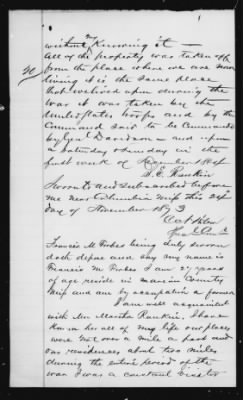 without Knowing it —
All of the property was taken off
from the place where we are now
living it is the same place
that we lived upon during the
war it was taken by the
United States troops and by the
Command said to be Commanded
by Genl Davidson and upon
a Saturday & Sunday in the
first week of December 1864
S. E. Rankin
Sworn to and subscribed before
me near Columbia Miss this
day of November 1873
Francis M. Forbes being duly sworn
doth depose and say my name is
Francis M Forbes I am 27 years
of age reside in Marion County
Miss and am by occupation a farmer
I am well acquainted
with Mrs Martha Rankin, I have
known her all of my life our places
were not over a mile apart and
our residences about two miles
during the entire period of the
war I was a constant visitor